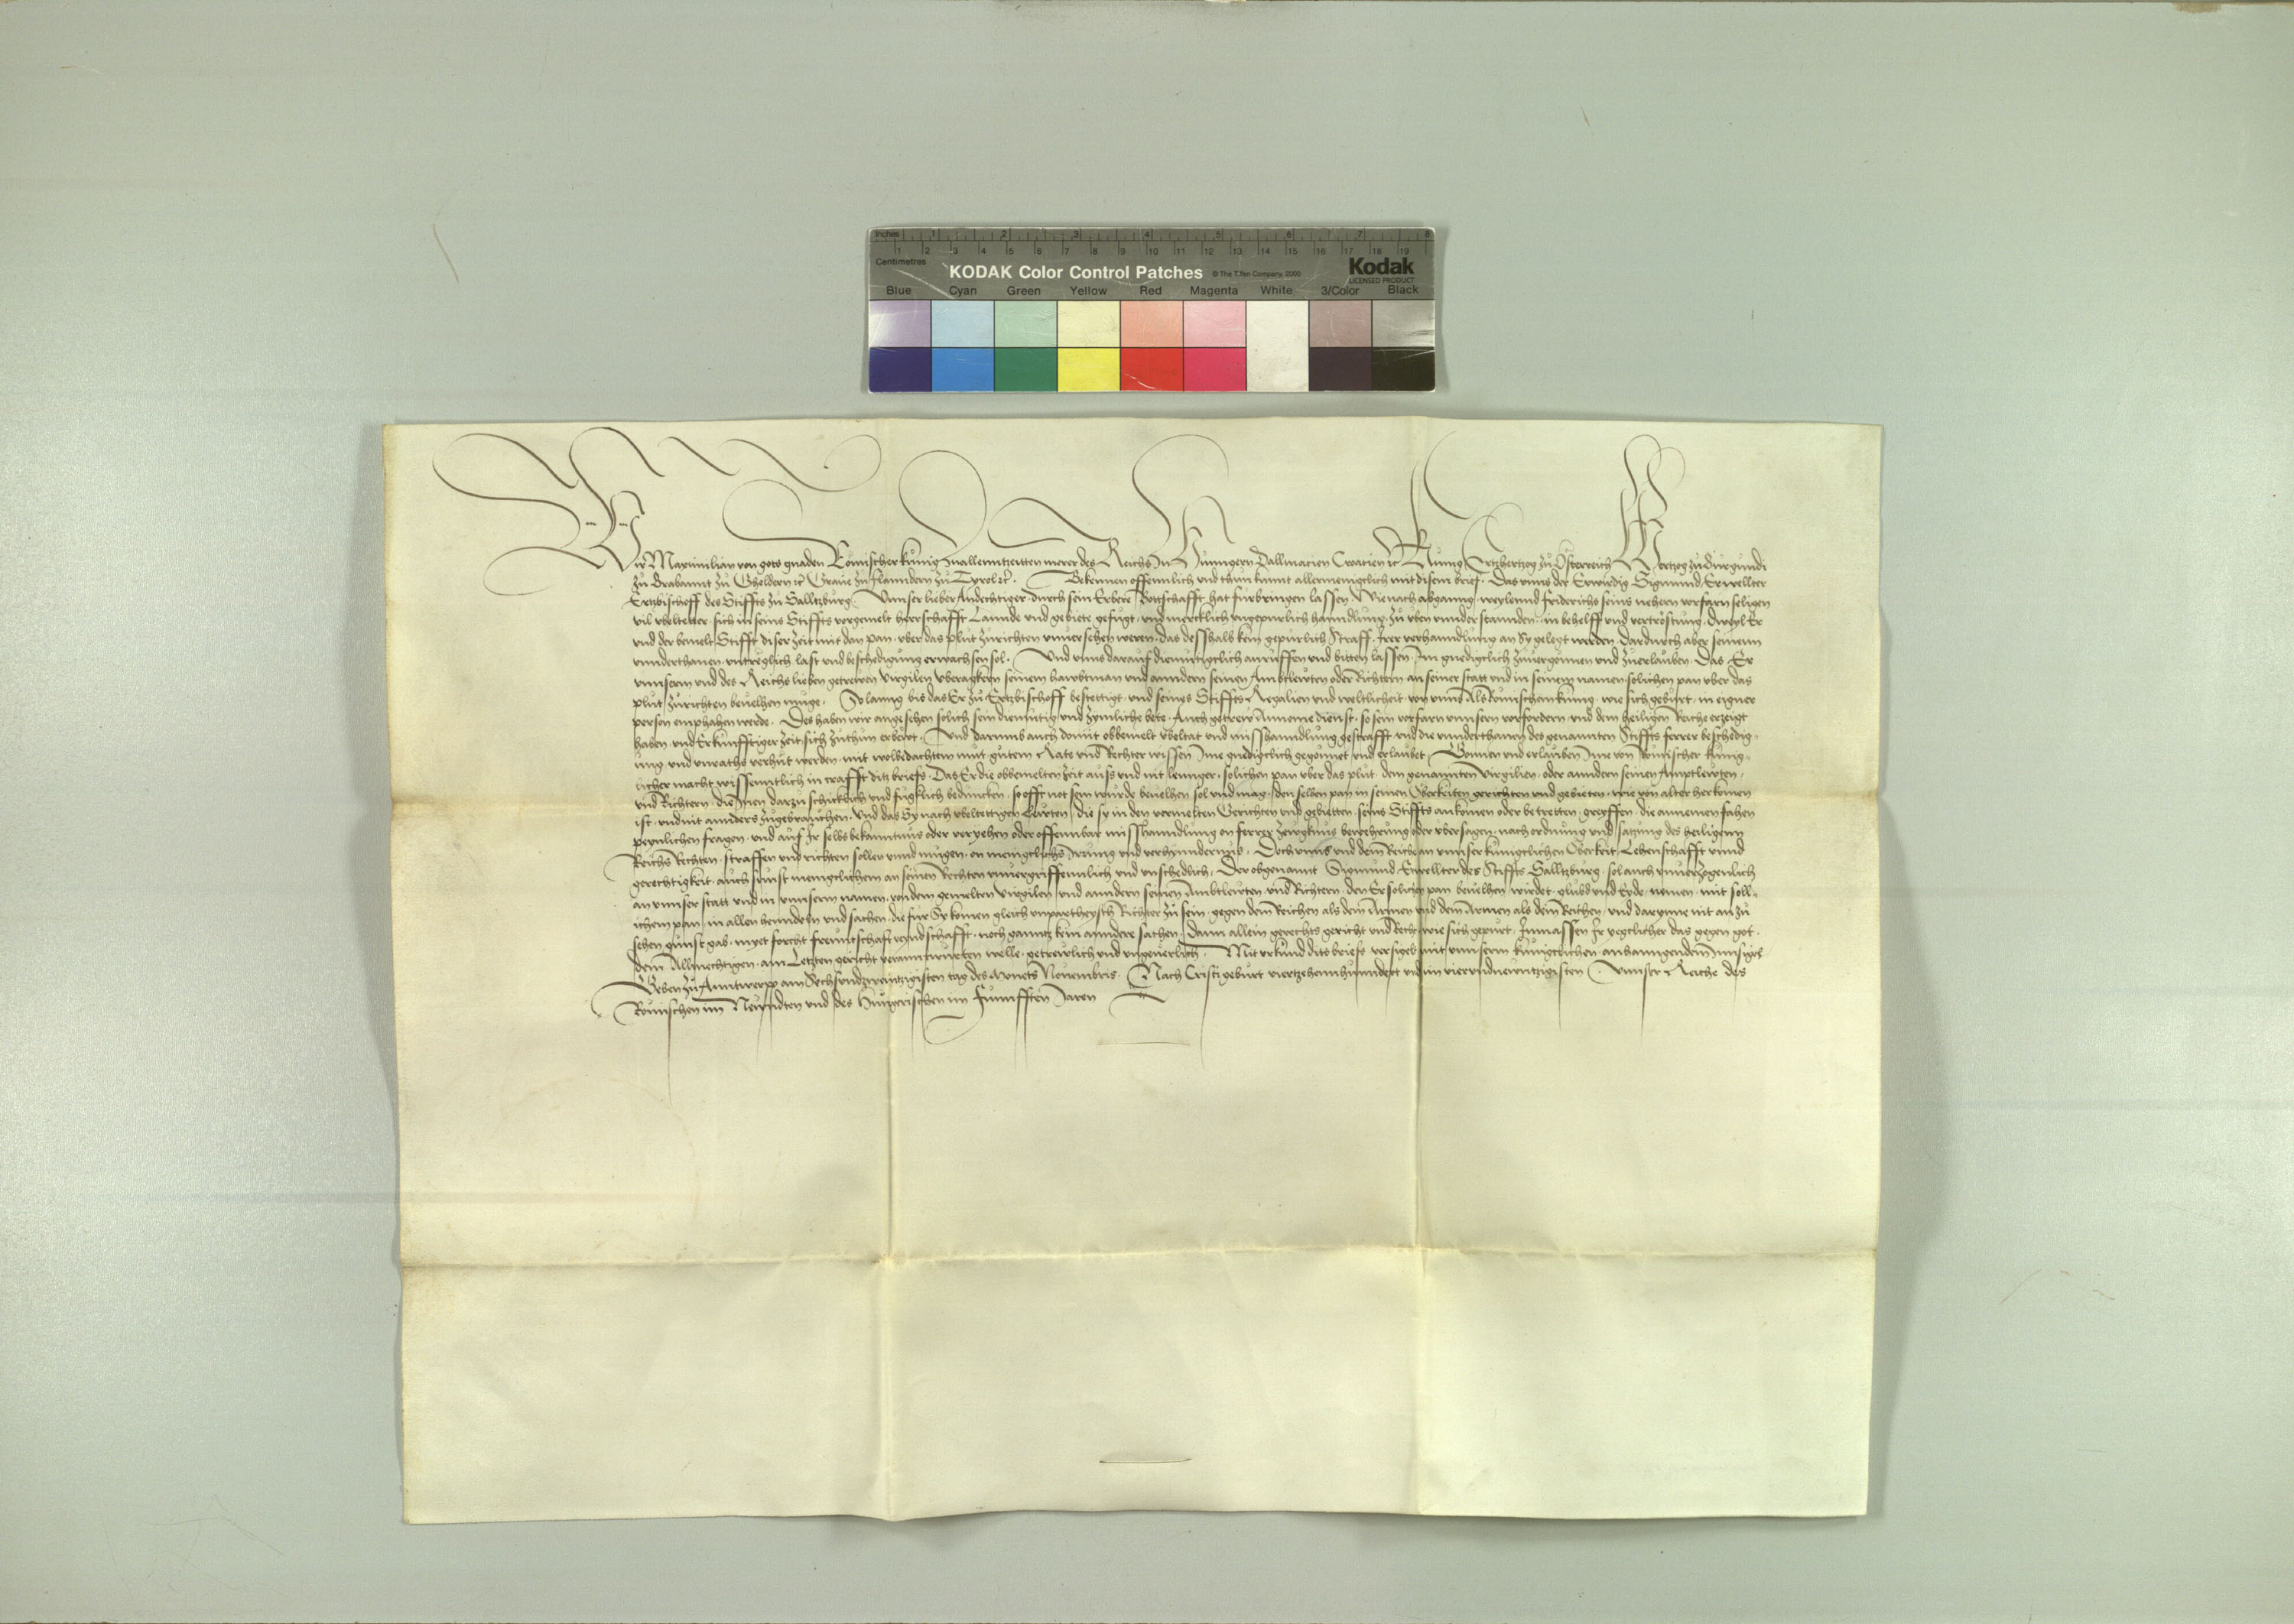 Inches 1 2 3 4 5 6 7 8
1 2 3 4 5 6 7 8 9 10 11 12 13 14 15 16 17 18 19
Centimetres
KODAK Color Control Patches © The Tiffen Company, 2000 Kodak
LICENSED PRODUCT
Blue Cyan Green Yellow Red Magenta White 3/Color Black
Wir Maximilian von gots gnaden Römischer künig zuallenntzeitten merer des Reichs zu Hunngern Dallmacien Croacien zc Kunig Ertzhertzog zu Österreich Hertzog zu Burgundi
zu Brabannt zu Gheldern zc Graue zu Flanndern zu Tyrol zc. Bekennen offennlich vnd thun kunnt allermeniglich mit disem brief. Das vnns der Erwirdig Sigmund Erwellter
Ertzbischoff des Stiffts zu Salltzburg. Vnnser lieber Andechtiger durch sein Erbere Bottschafft hat furbringen lassen Wie nach abganng weylennd Friderichs seins nehern vorfarn seligen
vil vbelteter sich in seins Stiffts vorgemelt herrschafft Lannde vnd gebiete gefugt vnd mercklich vngepurlich hanndlung zu vben vnnderstannden in behelff vnd vertröstung Dweyl Er
vnd der bemelt Stifft diser zeit mit dan pan vber das plut zurichten vnuersehen weren das desshalb kein gepurlich Straff Irer verhanndlung an Sy gelegt werden Dardurch aber seinenn
vnnderthanen vntreglich last vnd beschedigung erwachsen sol. Vnd vnns darauf diemutigclich anruffen vnd bitten lassen Im gnedigclich zuuergonnen vnd zuerlauben. Das Er
vnnserm vnd des Reichs lieben getrewen Virgilien Vberagkern seinem hawbtman vnd anndern seinen Ambtleuten oder Richtern an seiner statt vnd in seinem namen solichen pan vber das
plut zurichten beuelhen muge. So lanng bis das Er zu Ertzbischoff bestettigt vnd seines Stiffts Regalien vnd weltlicheit von vnns Als Römischen kunig wie sich geburt in eigner
person emphahen werde. Des haben wir angesehen solich sein diemutig vnd zymliche bete Auch getrew Anneme dienst so sein vorfarn vnnsern vorfordern vnd dem heiligen Reiche erzeigt
haben vnd Er kunfftiger zeit sich zuthun erbert. Vnd darumb auch damit obbemelt vbeltat vnd misshanndlung gestrafft vnd die vnnderthanen des genannten Stiffts ferrer beschedig-
ung vnd vnraths verhut werden mit wolbedachtem mut gutem Rate vnd Rechter wissen Ime gnedigclich gegönnet vnd erlaubet Gonnen vnd erlauben Ime von Römischer kunig-
licher macht wissenntlich in crafft ditz briefs. Das Er die obbemelten zeit auss vnd nit lennger solichen pan vber das plut dem genannten Virgilien oder anndern seinen Amptleuten
vnd Richtern die Inen darzu schicklich vnd fugklich beduncken so offt not sein wurde beuelhen sol vnd mag den selben pan in seinen Oberkeiten gerichten vnd gebieten wie von alter herkomen
ist vnd nit annders zugebrauchen. Vnd das Sy nach vbeltettigen Leuten die sy in den vermelten Gerichten vnd gebietten seins Stiffts ankomen oder betretten greyffen die annemen fahen
peynlichen fragen vnd auf Ir selbs bekanntnus oder veryehen oder offennbar misshanndlung on ferrer zewgknus bewehrung oder vbersagen nach ordnung vnd satzung des heiligenn
Reichs Rechten straffen vnd richten sollen vnnd mugen on meniglichs Irrung vnd verhynndernus. Doch vnns vnd dem Reiche an vnnser kunigclichen Oberkeit Lehenschafft vnnd
gerechtigkeit auch sunst menigclichem an seinen Rechten vnuergriffennlich vnd vnschedlich. Der obgenannt Sigmund Erwellter des Stiffts Salltzburg sol auch vnuerzogenlich
an vnnser statt vnd in vnnserm namen von dem gemelten Virgilien vnd anndern seinen Ambtleuten vnd Richtern den Er solichen pan beuelhen wirdet glubd vnd Eyde nemen mit soll-
ichem pan in allen henndeln vnd sachen die fur Sy komen gleich vnpartheysch Richter zu sein gegen dem Reichen als dem Armen vnd dem Armen als dem Reichen vnd darynne nit an zu
sehen gunst gab myet forcht freuntschafft veyndschafft noch ganntz kein anndere sachen Dann allein gerechts gericht vnd Recht wie sich gepurt Inmassen Ir yegclicher das gegen got
dem Allmechtigen am Letzten gericht verannwurten welle getrewlich vnd vngeuerlich. Mit vrkund dits briefs versigelt mit vnnserm kunigclichen anhanngendem Innsigel
Geben zu Anntwerpp am Sechsundzweintzigisten tag des Monets Nouembris Nach Cristi geburt viertzehennhunndert vnd im vierundnewntzigisten Vnnser Reiche des
Römischen im Newndten vnd des Hungerischen im Funnfften Jaren